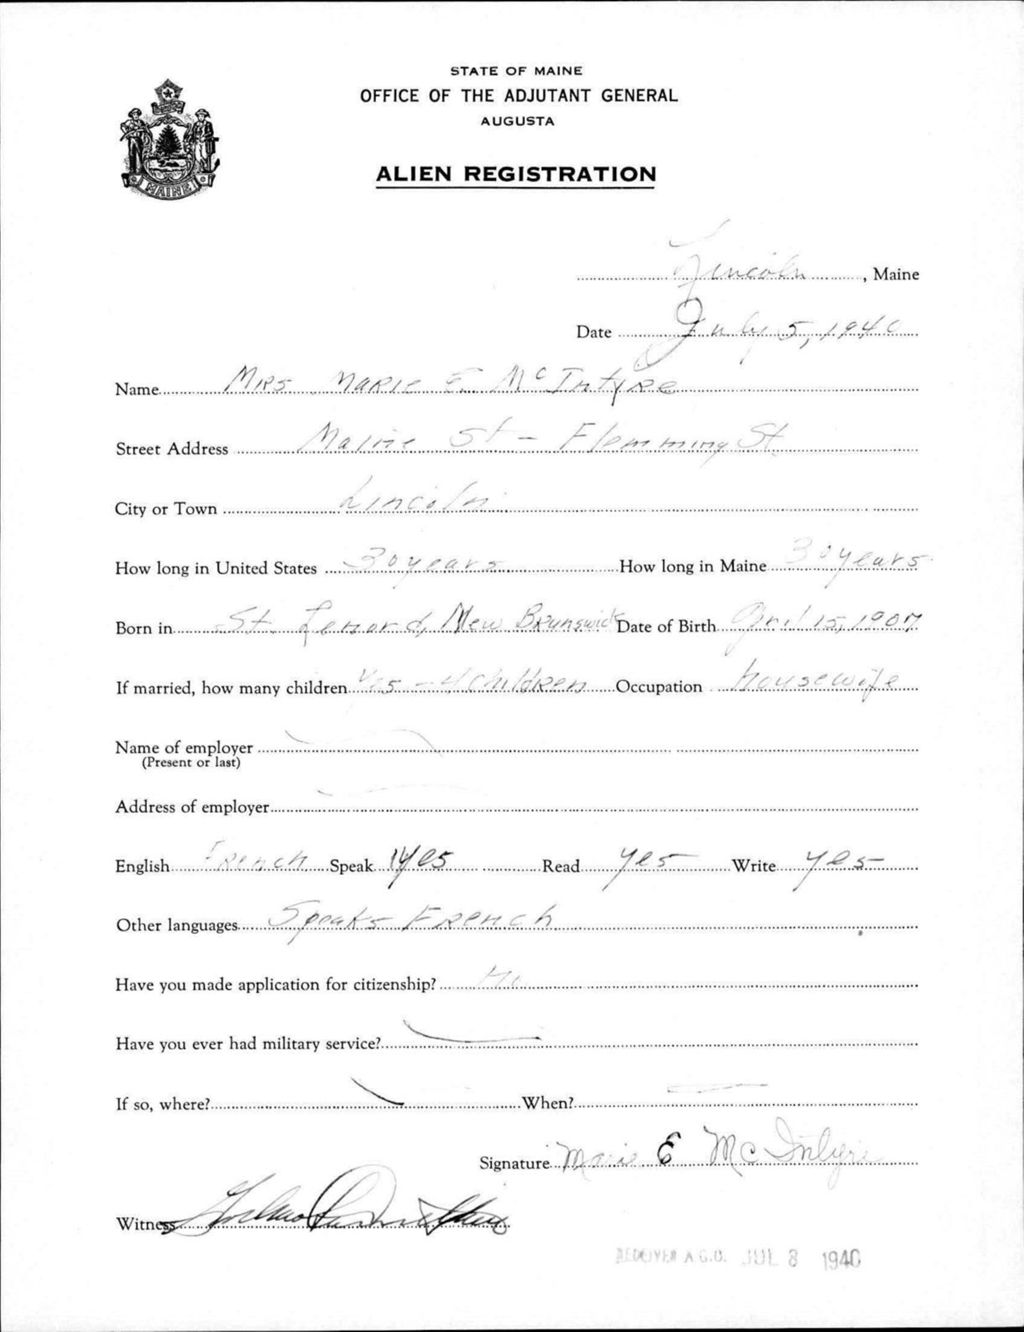 STATE OF MAINE
OFFICE OF THE ADJUTANT GENERAL
AUGUSTA
ALIEN REGISTRATION
MAINE
Lincoln, Maine
Date July 5, 1940
Name Mrs Marie E. McIntyre
Street Address Maine St - Flemming St.
City or Town Lincoln
How long in United States 30 years How long in Maine 30 years
Born in St. Lenord, New Brunswick Date of Birth April 15, 1907
If married, how many children Yes - 4 Children Occupation housewife
Name of employer
(Present or last)
Address of employer
English French Speak Yes Read Yes Write Yes
Other languages Speaks French
Have you made application for citizenship? No
Have you ever had military service?
If so, where? When?
Signature Marie E McIntyre
Witness
RECEIVED A.G.O. JUL 8 1940